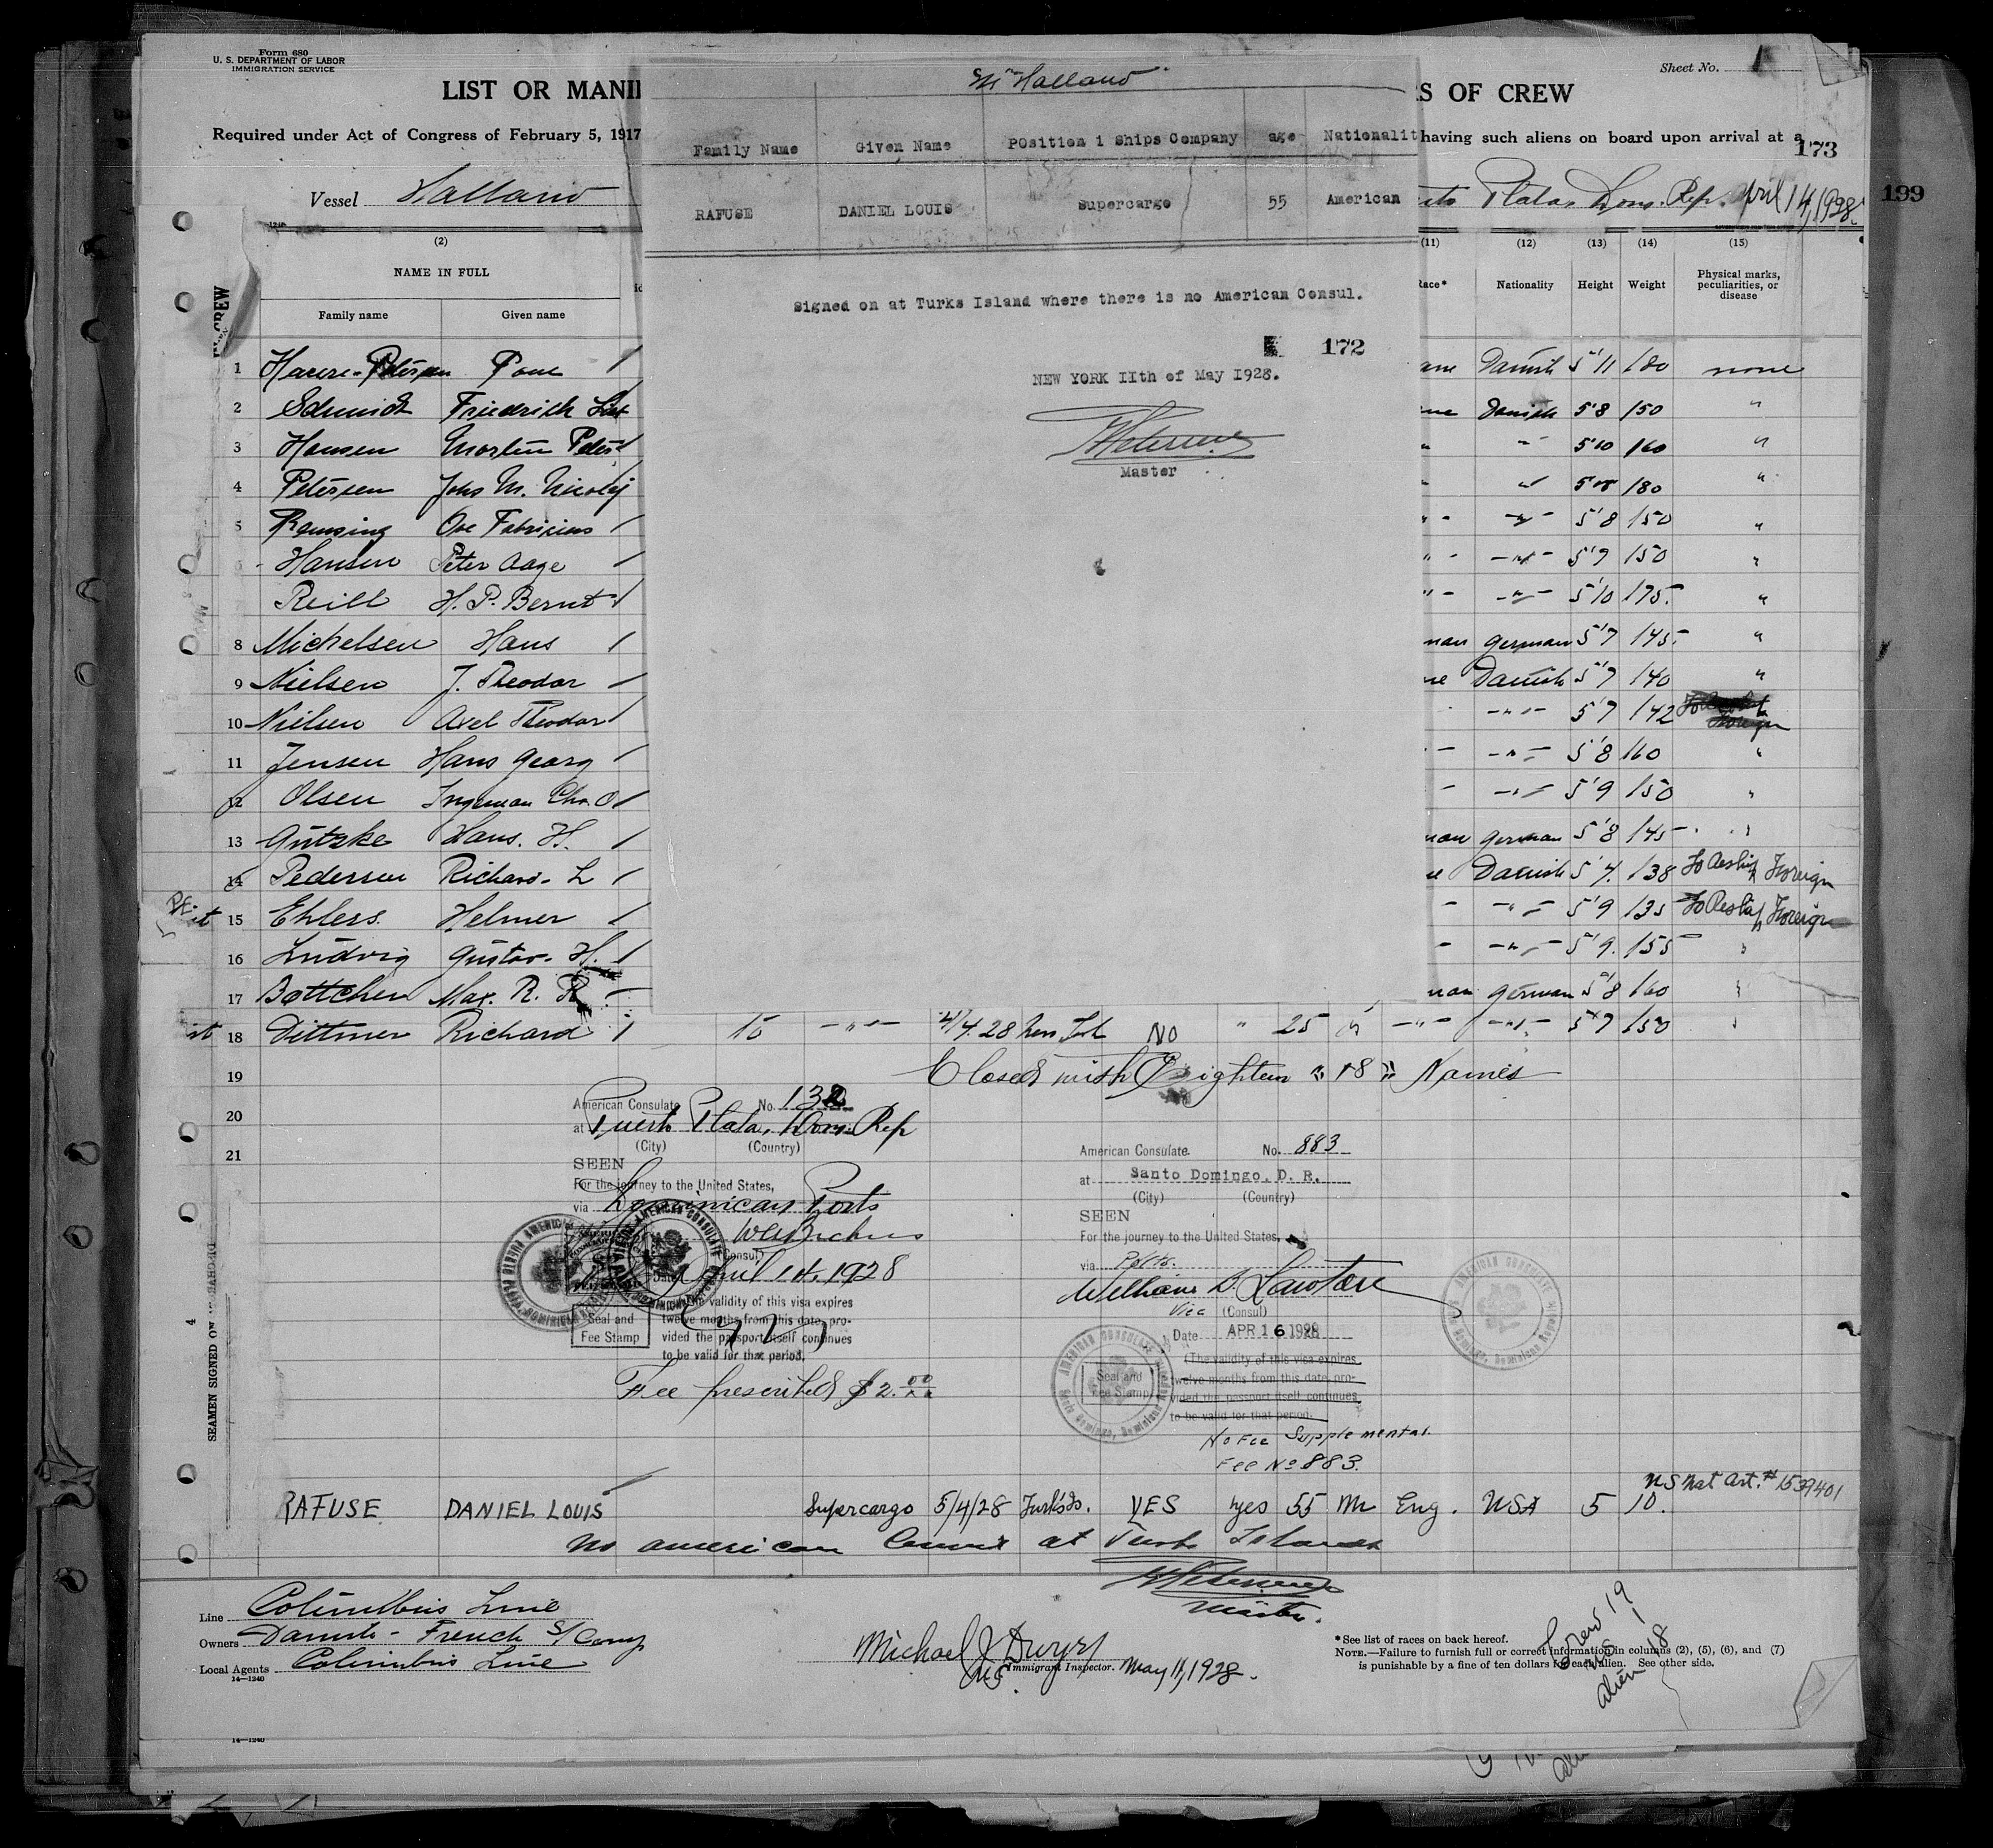 Form 680
U. S. DEPARTMENT OF LABOR
IMMIGRATION SERVICE
Sheet No. 1
LIST OR MANI
S OF CREW
Required under Act of Congress of February 5, 1917
having such aliens on board upon arrival at a
173
199
Vessel Halland
Plata, Dom. Rep. April 14, 1928.
"Halland"
Family Name Given Name Position i Ships Company age Nationalit
RAFUSE DANIEL LOUIS Supercargo 55 American
Signed on at Turks Island where there is no American Consul.
172
NEW YORK 11th of May 1928.
Master
(2) (11) (12) (13) (14) (15)
NAME IN FULL Race* Nationality Height Weight Physical marks, peculiarities, or disease
Family name Given name
1 Petersen Danish 5'11 180 none
2 Schmidt Friedrich Danish 5'8 150 "
3 Hansen Morten Peter " 5'10 160 "
4 Petersen Johs M. Nicolaj " 180 "
5 Ramsing Ove Fabricius " 5'8 150 "
6 Hansen Peter Aage " 5'9 150 "
Reill H. P. Bernt " 5'10 175. "
8 Michelsen Hans German 5'7 145 "
9 Nielsen J. Theodor Danish 5'7 140 "
10 Nielsen Axel Theodor " 5'7 142
11 Jensen Hans Georg " 5'8 160 "
12 Olsen Ingeman Chr. O " 5'9 150 "
13 Gützke Hans. H. German 5'8 145 "
14 Pedersen Richard L Danish 5'7. 138 To Reship Foreign
15 Ehlers. Helmer " 5'9 135 To Reship Foreign
16 Ludvig Gustav. H. " 5'9. 155 "
17 Bøttcher Max. R. R. German 5'8 160 "
18 Dittmer Richard 10 " NO " 25 " " 5'7 150 "
19 Closed with Eighteen "18" Names
20
21
American Consulate No. 132
at Puerto Plata, Dom. Rep
(City) (Country)
SEEN
For the journey to the United States,
via Dominican Ports
(Consul)
Date April 14. 1928
The validity of this visa expires
twelve months from this date, pro-
vided the passport itself continues
to be valid for that period.
Seal and
Fee Stamp
Fee prescribed $2.00
American Consulate No. 883
at Santo Domingo, D. R.
(City) (Country)
SEEN
For the journey to the United States,
via
William
Vice (Consul)
Date APR 16 1928
(The validity of this visa expires
twelve months from this date, pro-
vided the passport itself continues
to be valid for that period.
Seal and
Fee Stamp
AMERICAN CONSULATE
Santo Domingo, Dominican Republic
No Fee Supplemental.
Fee No 883.
SEAMEN SIGNED ON
4
US Nat Cert. # 1539401
RAFUSE DANIEL LOUIS Supercargo 5/4/28 Turks Is. YES yes 55 M Eng. USA 5 10.
No american Consul at Turks Islands
Master.
Line Columbus Line
Owners Danish - French S/Comp
Local Agents Columbus Line
14—1240
Michael J Dwyer
Immigrant Inspector. May 11, 1928.
*See list of races on back hereof.
NOTE.—Failure to furnish full or correct information in columns (2), (5), (6), and (7)
is punishable by a fine of ten dollars for each alien. See other side.
Crew 19
US 1
alien 18
14—1240